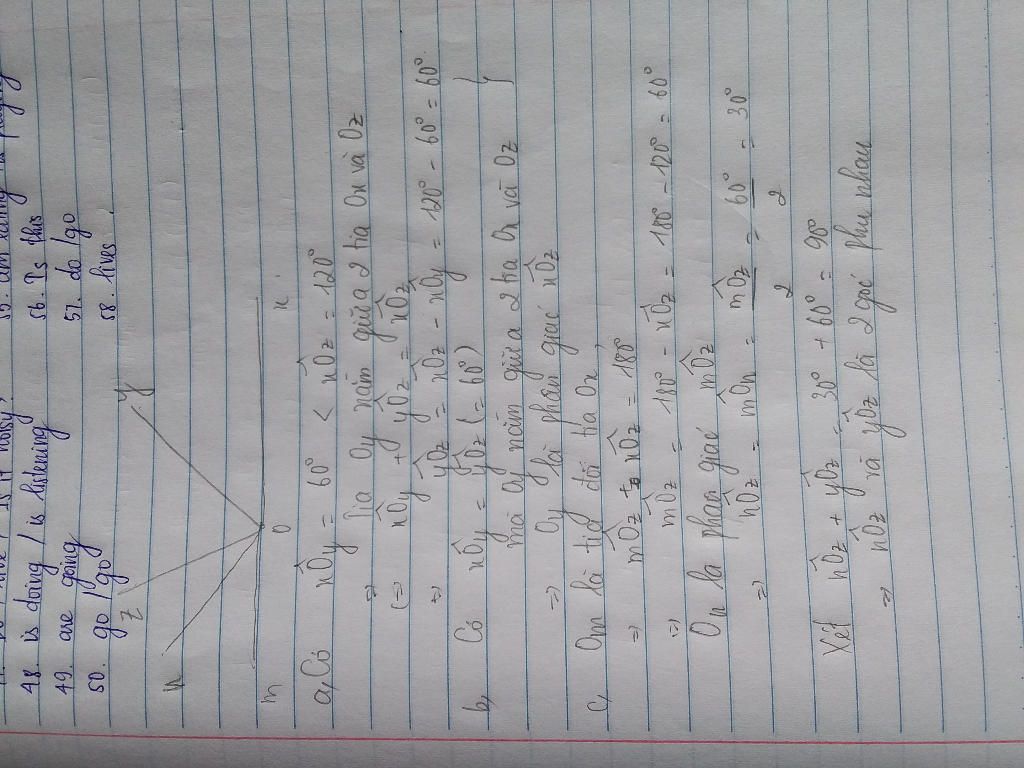 48. is doing / is listening
49. are going
50. go / go
56. Is this
57. do / go
58. lives
z
y
n
m
O
x
a, Có xÔy = 60° < xÔz = 120°
=> Tia Oy nằm giữa 2 tia Ox và Oz
(=) xÔy + yÔz = xÔz
=> yÔz = xÔz - xÔy = 120° - 60° = 60°
b, Có xÔy = yÔz (= 60°) }
mà Oy nằm giữa 2 tia Ox và Oz
=> Oy là phân giác xÔz
c, Om là tia đối tia Ox
=> mÔz + xÔz = 180°
=> mÔz = 180° - xÔz = 180° - 120° = 60°
On là phân giác mÔz
=> nÔz = mÔn = mÔz/2 = 60°/2 = 30°
Xét nÔz + yÔz = 30° + 60° = 90°
=> nÔz và yÔz là 2 góc phụ nhau